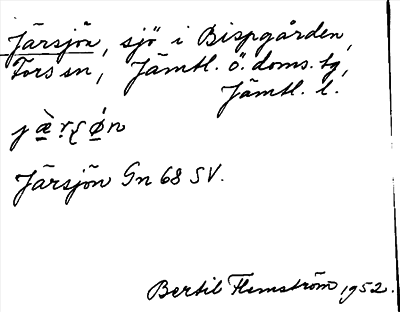 Järsjön, sjö i Bispgården,
Fors sn, Jämtl. ö. doms. tg,
Jämtl. l.
Järsjön Gn 68 SV.
Bertil Flemström 1952.